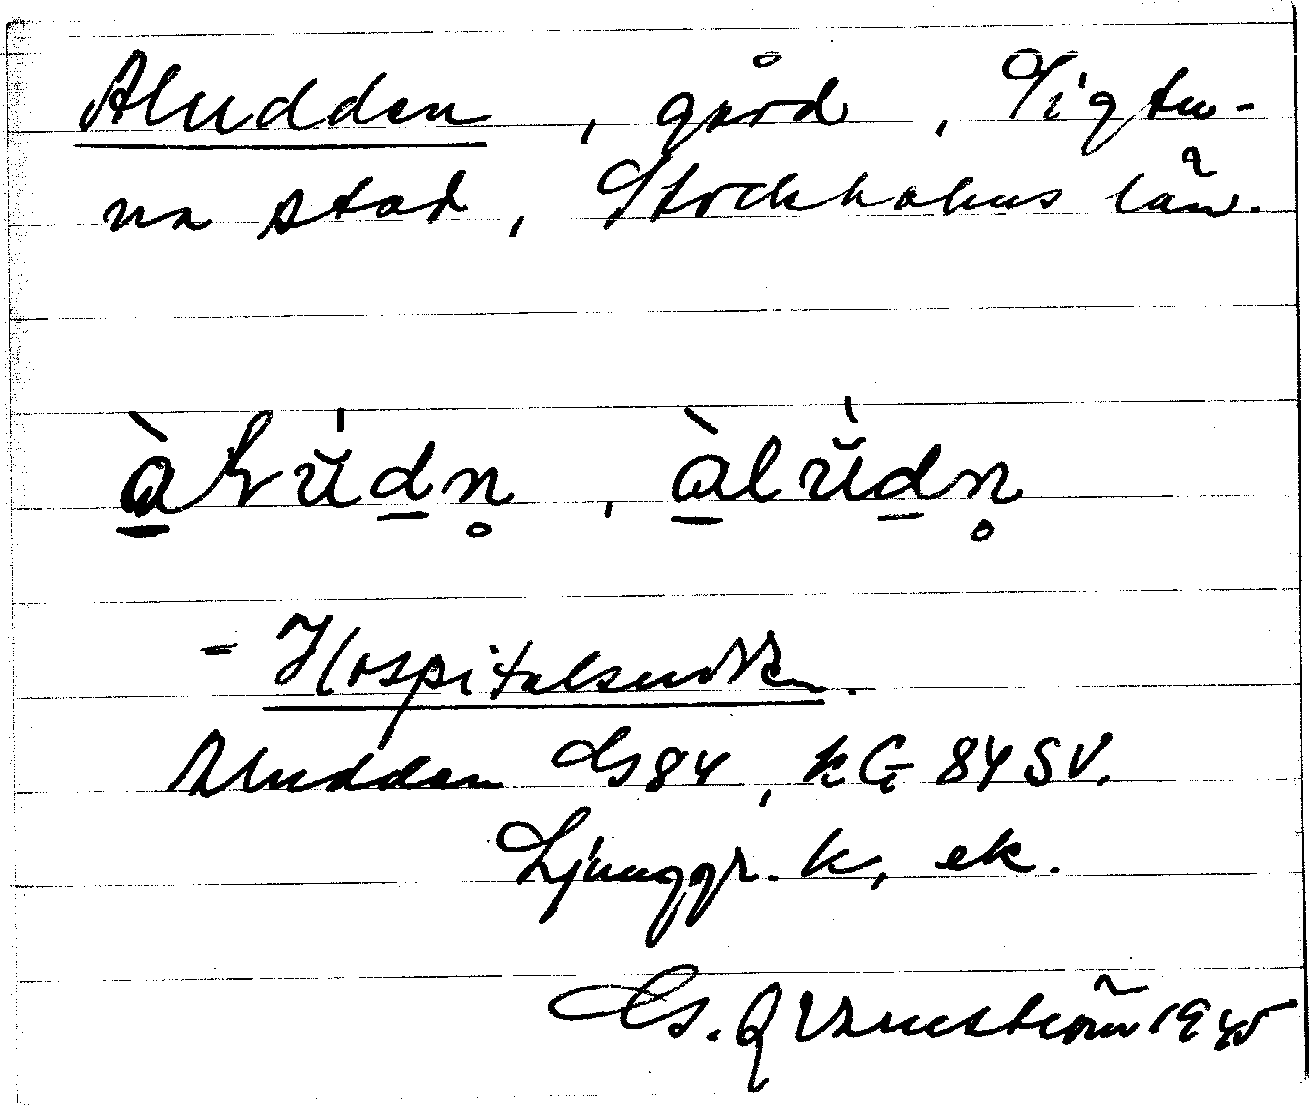 Aludden, gård, Sigtu-
na stad, Stockholms län.
àlu̇̆dn̥, àlu̇̆dn̥
- Hospitalsudden.
Aludden Gs84, kG 84 SV.
Ljunggr. k, ek.
Gs. Qvarnström 1945